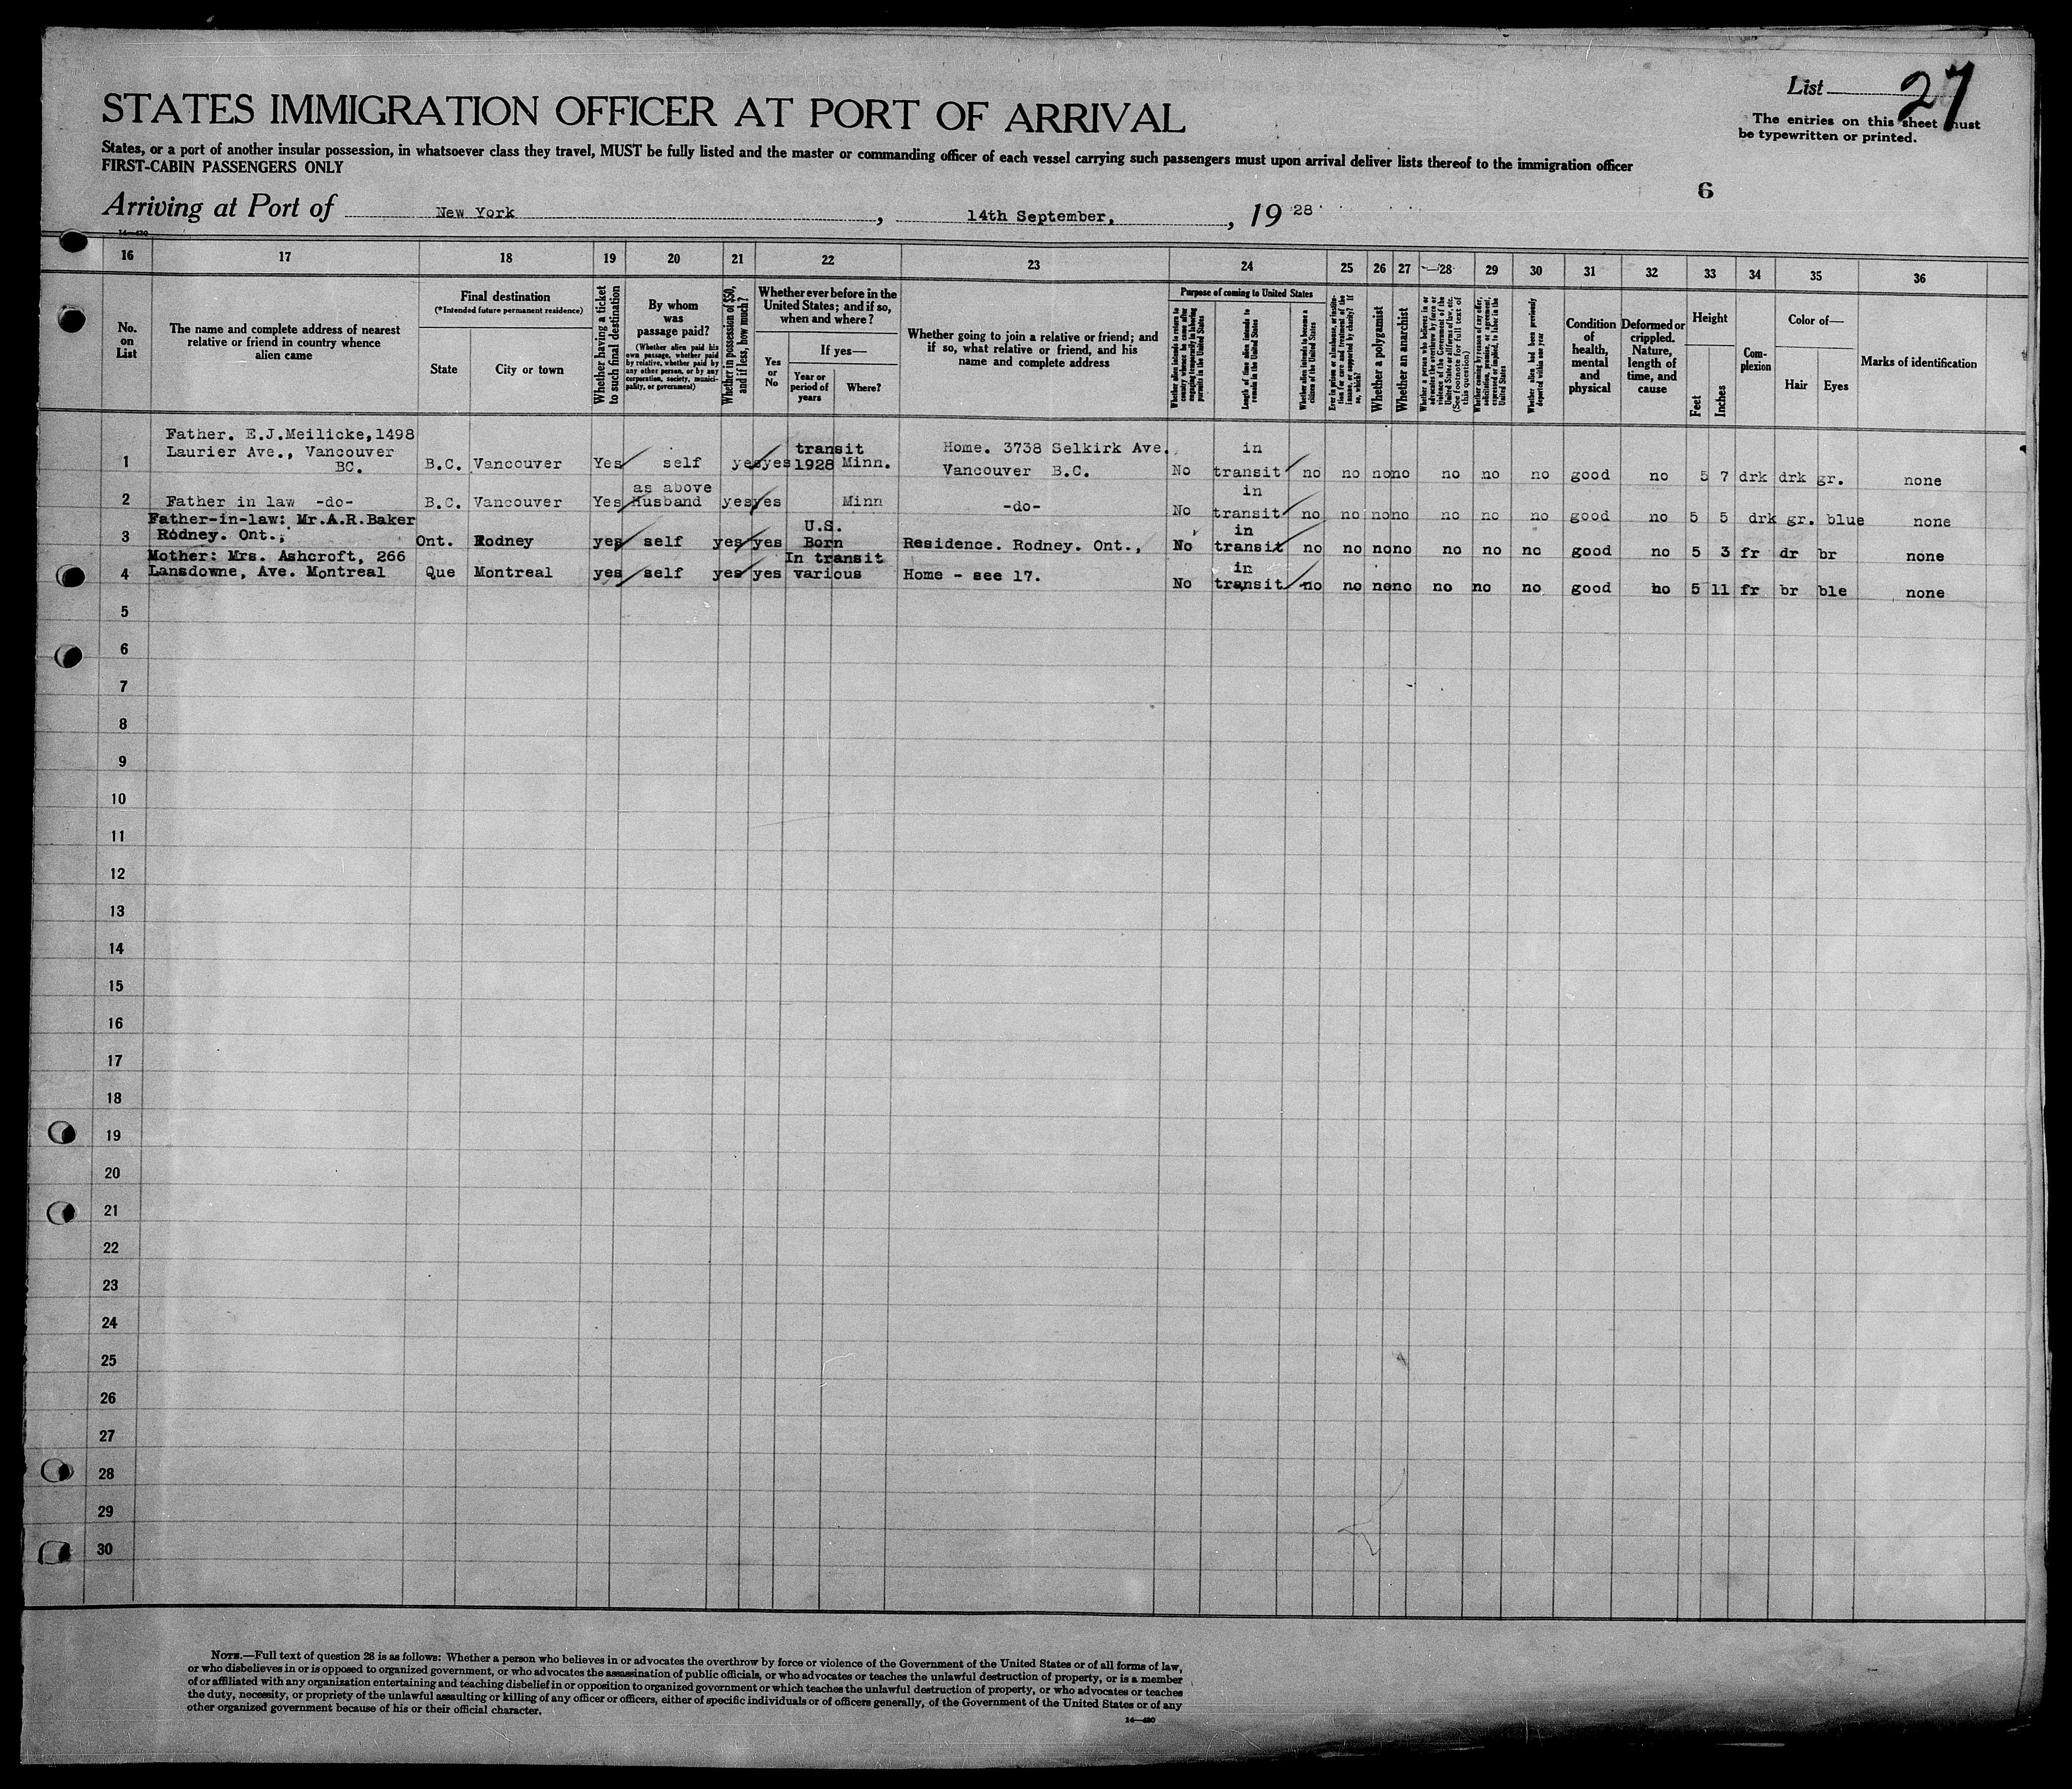 List 27
The entries on this sheet must
be typewritten or printed.
STATES IMMIGRATION OFFICER AT PORT OF ARRIVAL
States, or a port of another insular possession, in whatsoever class they travel, MUST be fully listed and the master or commanding officer of each vessel carrying such passengers must upon arrival deliver lists thereof to the immigration officer
FIRST-CABIN PASSENGERS ONLY
6
Arriving at Port of New York, 14th September, 19 28
14—430
16 17 18 19 20 21 22 23 24 25 26 27 28 29 30 31 32 33 34 35 36
No. on List
The name and complete address of nearest relative or friend in country whence alien came
Final destination
(*Intended future permanent residence)
State
City or town
Whether having a ticket to such final destination
By whom was passage paid?
(Whether alien paid his own passage, whether paid by relative, whether paid by any other person, or by any corporation, society, municipality, or government)
Whether in possession of $50, and if less, how much?
Whether ever before in the United States; and if so, when and where?
Yes or No
If yes—
Year or period of years
Where?
Whether going to join a relative or friend; and if so, what relative or friend, and his name and complete address
Purpose of coming to United States
Whether alien intends to return to country whence he came after engaging temporarily in laboring pursuits in the United States
Length of time alien intends to remain in the United States
Whether alien intends to become a citizen of the United States
Ever in prison or almshouse, or institution for care and treatment of the insane, or supported by charity? If so, which?
Whether a polygamist
Whether an anarchist
Whether a person who believes in or advocates the overthrow by force or violence of the Government of the United States or all forms of law, etc. (See footnote for full text of this question)
Whether coming by reason of any offer, solicitation, promise, or agreement, expressed or implied, to labor in the United States
Whether alien had been previously deported within one year
Condition of health, mental and physical
Deformed or crippled. Nature, length of time, and cause
Height
Feet
Inches
Complexion
Color of—
Hair
Eyes
Marks of identification
1 Father. E.J.Meilicke,1498 Laurier Ave., Vancouver BC. B.C. Vancouver Yes self yes yes transit 1928 Minn. Home. 3738 Selkirk Ave. Vancouver B.C. No in transit no no no no no no no good no 5 7 drk drk gr. none
2 Father in law -do- B.C. Vancouver Yes as above Husband yes yes Minn -do- No in transit no no no no no no no good no 5 5 drk gr. blue none
3 Father-in-law: Mr.A.R.Baker Rodney. Ont., Ont. Rodney yes self yes yes U.S. Born Residence. Rodney. Ont., No in transit no no no no no no no good no 5 3 fr dr br none
4 Mother: Mrs. Ashcroft, 266 Lansdowne, Ave. Montreal Que Montreal yes self yes yes In transit various Home - see 17. No in transit no no no no no no no good no 5 11 fr br ble none
5
6
7
8
9
10
11
12
13
14
15
16
17
18
19
20
21
22
23
24
25
26
27
28
29
30
NOTE.—Full text of question 28 is as follows: Whether a person who believes in or advocates the overthrow by force or violence of the Government of the United States or of all forms of law,
or who disbelieves in or is opposed to organized government, or who advocates the assassination of public officials, or who advocates or teaches the unlawful destruction of property, or is a member
of or affiliated with any organization entertaining and teaching disbelief in or opposition to organized government or which teaches the unlawful destruction of property, or who advocates or teaches
the duty, necessity, or propriety of the unlawful assaulting or killing of any officer or officers, either of specific individuals or of officers generally, of the Government of the United States or of any
other organized government because of his or their official character.
14—430